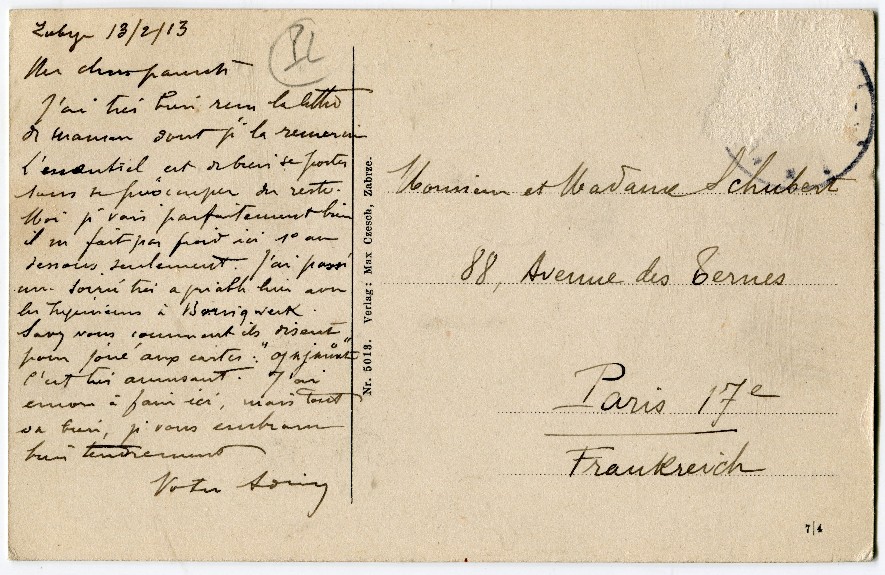 Zabrze 13/2/13
Mes chers parents
J'ai très bien reçu la lettre
de maman dont je la remercie
L'essentiel est de bien se porter
sans se préoccuper du reste.
Moi je vais parfaitement bien
il ne fait pas froid ici 1° au
dessous seulement. J'ai passé
une soirée très agréable hier avec
les Ingénieurs à Borsigwerk.
Savez vous comment ils disent
pour joué aux cartes:
C'est très amusant. J'ai
encore à faire ici, mais tout
va bien, je vous embrasse
bien tendrement
Votre
BL
Nr. 5013. Verlag: Max Czesch, Zabrze.
Monsieur et Madame Schubert
88, Avenue des Ternes
Paris 17e
Frankreich
7/4